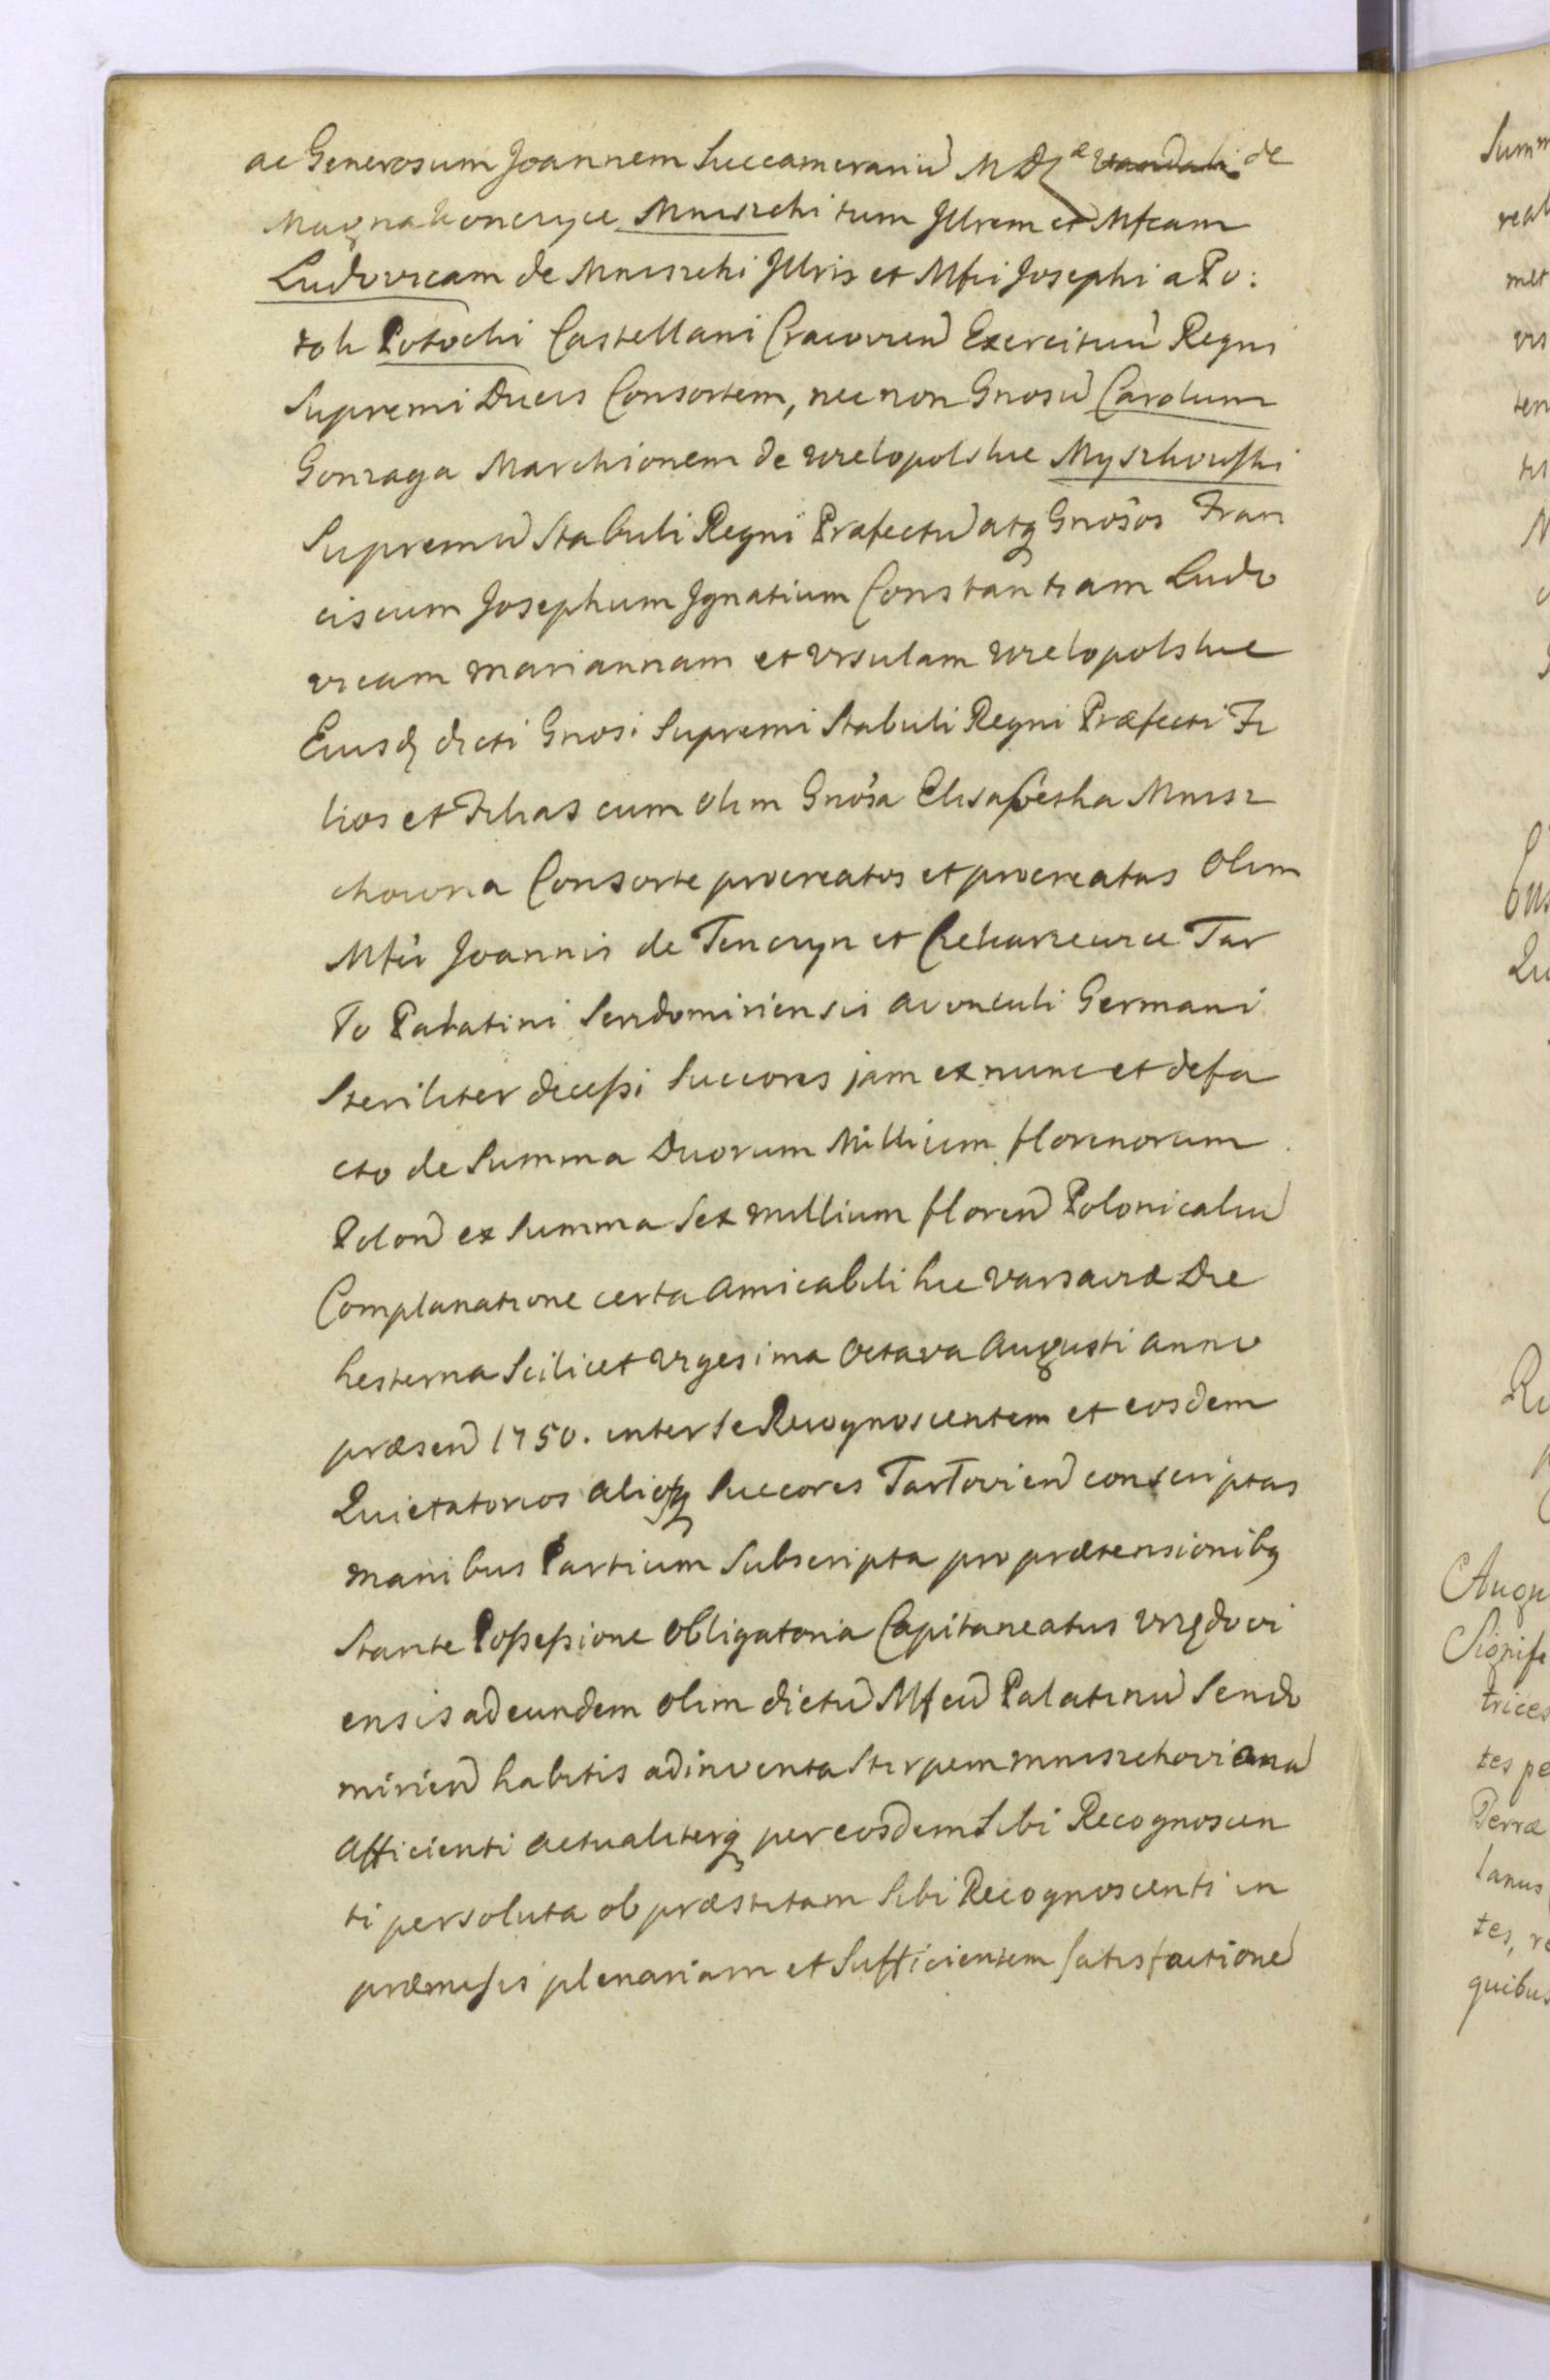 ac Generosum Joannem Succamerariū M D L æ de
Magna Konczyce Mniszchi tum Jllrem et Mfcam
Ludovicam de Mniszchi Jllris et Mfci Josephi a Po:
tok Potocki Castellani Cracovien̄ Exercituū Regni
Supremi Ducis Consortem, nec non Gnosū Carolum
Gonzaga Marchionem de Wielopolskie Myszkowski
Supremū Stabuli Regni Præfectū atq Gnosos Fran
ciscum Josephum Jgnatium Constantiam Ludo
vicam Mariannam et Vrsulam Wielopolskie
Eiusd dicti Gnosi Supremi Stabuli Regni Præfecti Fi
lios et Filias cum olim Gnosa Elisabetha Mnisz
chowna Consorte procreatos et procreatas olim
Mfci Joannis de Tenczyn et Tar
ło Palatini Sendomiriensis avunculi Germani
Steriliter decessi Succores jam ex nunc et de fa
cto de Summa Duorum Millium florenorum
Polon̄ ex Summa Sex millium floren̄ Polonicaliū
Complanatione certa amicabili hic Varsaviæ Die
hesterna Scilicet Vigesima Octava Augusti anno
præsen̄ 1750. inter se Recognoscentem et eosdem
Quietatorios aliosq Succores Tarłovien̄ conscriptas
manibus Partium Subscripta pro prætensionibq
Stante Possessione obligatoria Capitaneatus Vrzędovi
ensis ad eundem olim dictū Mfcū Palatinū Sendo
mirien̄ habitis adinventa Stirpem Mniszchovianā
afficienti actualiterq per eosdem Sibi Recognoscen
ti persoluta ob præstitam Sibi Recognoscenti in
præmissis plenariam et Sufficientem Satisfactionē
Summ
real
met
vis
ten
Augu
Signife
trices
tes pe
Terræ
lanus
tes, re
quibus